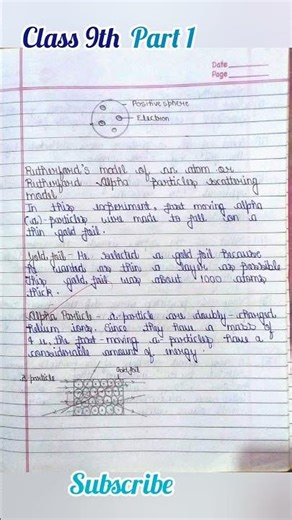 Class 9th Part 1
Date
Page
Positive sphere
Electron
Rutherford's model of an atom or
Rutherford Alpha particles scattering
model
In this experiment, fast moving alpha
(α)-particles were made to fall on a
thin gold foil.
Gold foil - He selected a gold foil because
he wanted as thin a layer as possible
This gold foil was about 1000 atoms
thick.
Alpha Particle - α-particle are doubly-charged
helium ions. Since they have a mass of
4 u, the fast-moving α particles have a
considerable amount of energy.
α particle
Gold foil
Subscribe